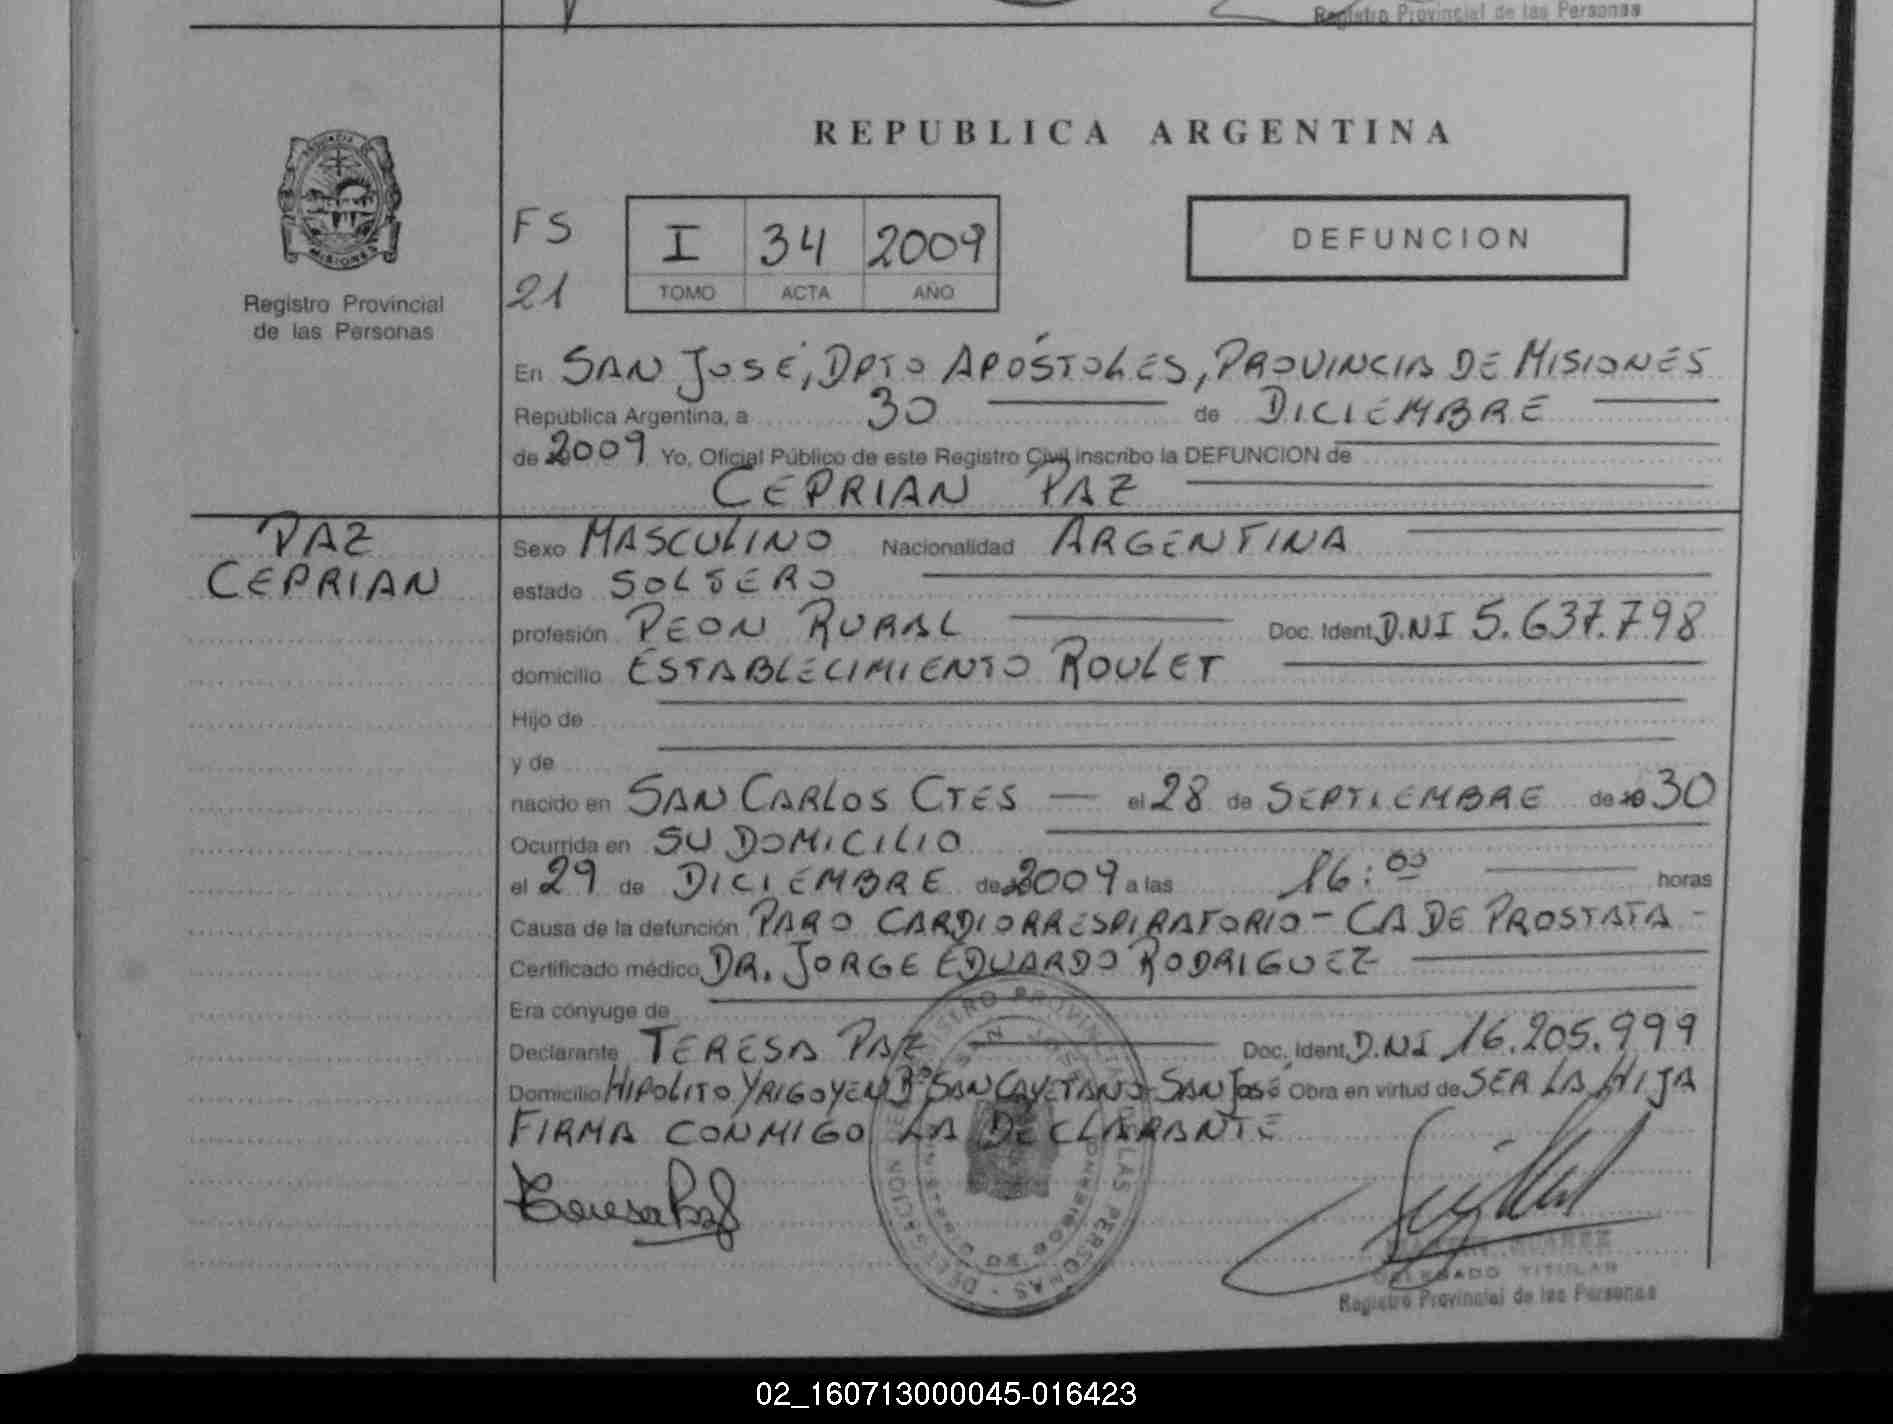 Registro Provincial de las Personas
REPUBLICA ARGENTINA
PROVINCIA
MISIONES
Registro Provincial
de las Personas
FS
21
I 34 2009
TOMO ACTA AÑO
DEFUNCION
En SAN JOSÉ, DPTO APÓSTOLES, PROVINCIA DE MISIONES
República Argentina, a 30 de DICIEMBRE
de 2009 Yo, Oficial Público de este Registro Civil inscribo la DEFUNCION de
CEPRIAN PAZ
PAZ
CEPRIAN
Sexo MASCULINO Nacionalidad ARGENTINA
estado SOLTERO
profesión PEON RURAL Doc. Ident. D.NI 5.637.798
domicilio ESTABLECIMIENTO ROULET
Hijo de
y de
nacido en SAN CARLOS CTES — el 28 de SEPTIEMBRE de 30
Ocurrida en SU DOMICILIO
el 29 de DICIEMBRE de 2009 a las 16:00 horas
Causa de la defunción PARO CARDIORRESPIRATORIO - CA DE PROSTATA -
Certificado médico DR. JORGE EDUARDO RODRIGUEZ
Era cónyuge de
Declarante TERESA PAZ Doc. Ident. D.NI 16.205.999
Domicilio HIPOLITO YRIGOYEN Bº SAN CAYETANO - SAN José Obra en virtud de SER LA HIJA
FIRMA CONMIGO LA DECLARANTE
Teresa Paz
REGISTRO PROVINCIAL DE LAS PERSONAS - DELEGACION
SAN JOSE
DELEGADO TITULAR
Registro Provincial de las Personas
02_160713000045-016423